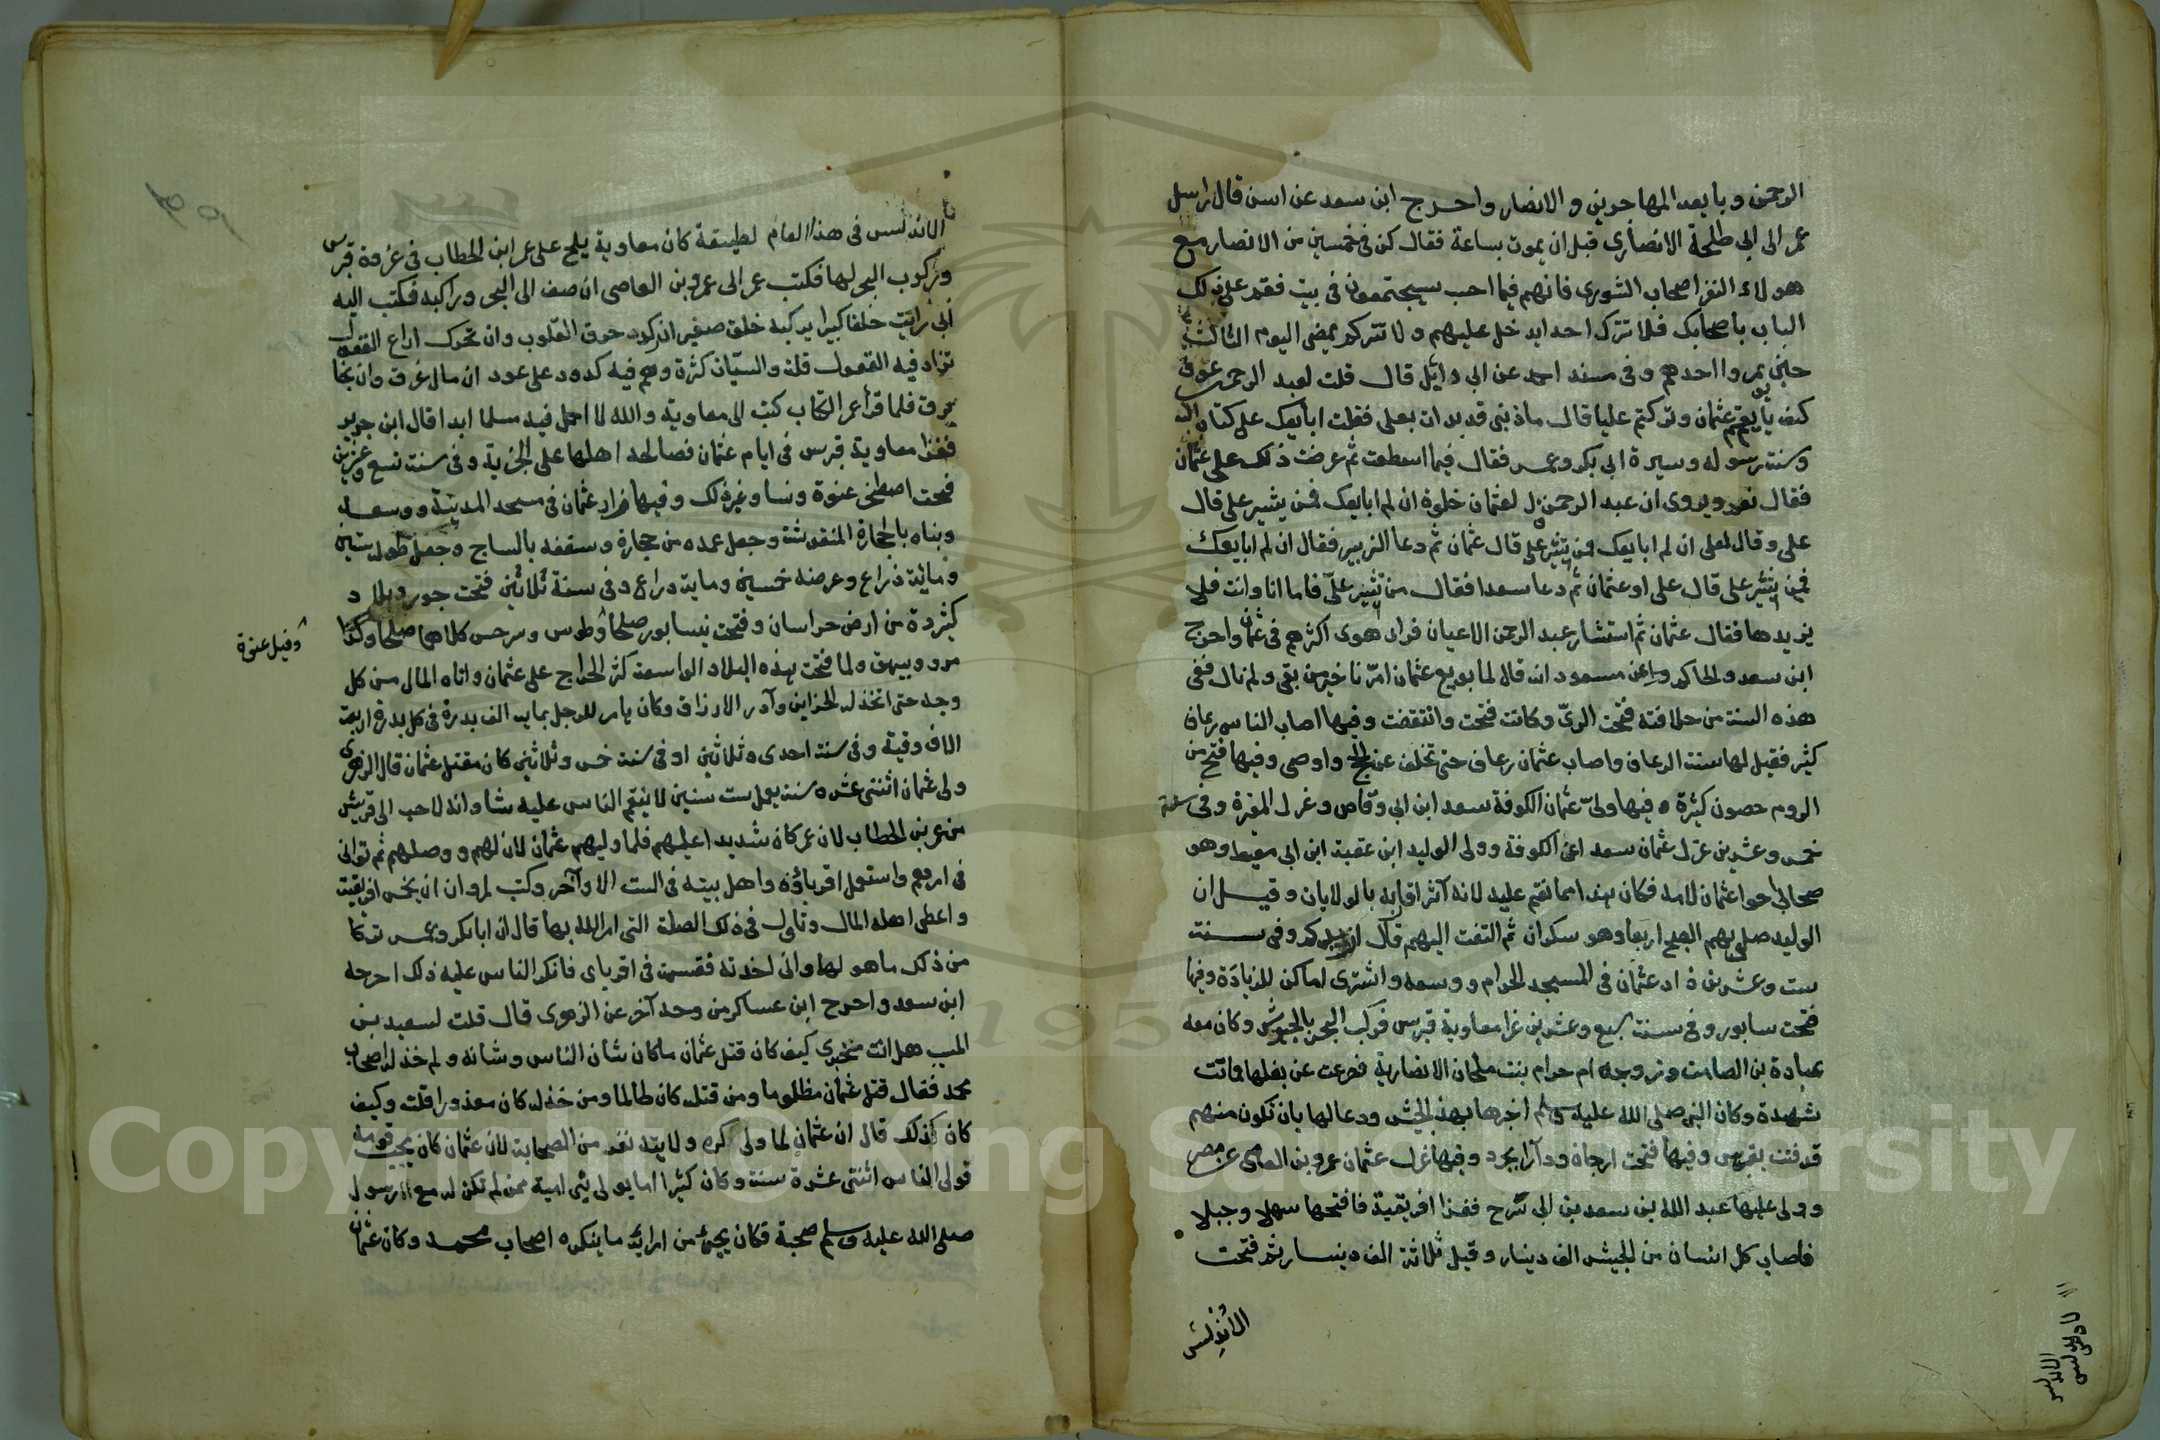 الرحمن وبايعه المهاجرين والانصار واخرج ابن سعد عن انس قال ارسل
عمر الى ابي طلحة الانصاري قبل ان يموت بساعة فقال كن في خمسين من الانصار مع
هولاء النفر اصحاب الشورى فانهم فيما احب سيجتمعون في بيت فقم على ذلك
الباب باصحابك فلا تترك احدا يدخل عليهم ولا تتركهم يمضي اليوم الثالث
حتى يمروا احدهم وفي مسند احمد عن ابي وايل قال قلت لعبد الرحمن بن عوف
كيف بايعتم عثمان وتركتم عليا قال ماذنبي قد بدات بعلي فقلت ابايعك على كتاب الله
وسنت رسوله وسيرة ابي بكر وعمر فقال فيما اسطعت ثم عرضت ذلك على عثمان
فقال نعم ويروى ان عبد الرحمن قال لعثمان خلوة ان لم ابايعك فمن يشير على قال
على وقال لعلي ان لم ابايعك فمن تشير علي قال عثمان ثم دعا الزبير فقال ان لم ابايعك
فمن تشير على قال على او عثمان ثم دعا سعدا فقال من تشير علي فاما انا وانت فلا
نريدها فقال عثمان ثم استشار عبد الرحمن الاعيان فراى هوى اكثرهم في عثمان واخرج
ابن سعد والحاكم وعن مسعود انه قال لما بويع عثمان امرنا خير من بقي ولم نال ففى
هذه السنت من خلافته فتحت الريّ وكانت فتحت وانتقضت وفيها اصاب الناس رعاف
كثير فقيل لها سنت الرعاف واصاب عثمان رعاف حتى تخلف عن الحج واوصى وفيها فتح من
الروم حصون كثيرة وفيها ولىّ عثمان الكوفة سعد ابن ابي وقاص وعزل المغيرة وفي سنة
خمس وعشرين عزل عثمان سعد اعن الكوفة وولى الوليد ابن عقبة ابن ابي معيط وهو
صحابي اخو عثمان لامه فكان هذا مما نقم عليه لانه آثر اقاربه بالولايات وقيل ان
الوليد صلى بهم الصبح اربعا وهو سكران ثم التفت اليهم قال ازيدكم وفى سنت
ست وعشرين زاد عثمان في المسجد الحرام ووسعه واشترى اماكن للزيادة وفيها
فتحت سابور وفي سنت سبع وعشرين غزا معاوية قبرس فركب البحر بالجيوش وكان معه
عبادة بن الصامت وزوجه ام حرام بنت ملحان الانصارية فصرعت عن بغلها فماتت
شهيدة وكان النبي صلى الله عليه وسلم اخبرها بهذا الجيش ودعا لها بان تكون منهم
قدفنت بقبرس وفيها فتحت ارجان ودارابجرد وفيها عزل عثمان عمرو بن العاص عن مصر
وولى عليها عبد الله بن سعد بن ابي سَرح فغزا افريقية فافتحها سهلا وجبلا
فاصاب كل انسان من الجيش الف دينار وقيل ثلاثة الف دينار ثم فتحت
الأندلس
الاندلس في هذا العام لطيفة كان معاوية يلح على عمر ابن الخطاب في غزوة قبرس
وركوب البحر لها فكتب عمر الى عمرو بن العاصي ان صف الى البحر وراكبه فكتب اليه
اني رايت خلقا كبيرا يركبه خلق صغير ان ركد خرق القلوب وان تحرك اراع العقول
تزاد فيه العقول قلة والسيّات كثرة وهم فيه كدود على عود ان مال غرق وان نجا
برق فلما قرأ عمر الكتاب كتب الى معاوية والله لا احمل فيه مسلما ابدا قال ابن جرير
فغزا معاوية قبرس في ايام عثمان فصالحه اهلها على الجزية وفي سنت تسع وعشرين
فتحت اصطخر عنوة ونسا وغير ذلك وفيها زاد عثمان في مسجد المدينة ووسعه
وبناه بالحجارة المنقوشة وجعل عمده من حجارة وسقفه بالساج وجعل طوله ستين
ومائة ذراع وعرضه خمسين وماية ذراع وفي سنة ثلاثين فتحت جور وبلاد
كثيرة من ارض خراسان وفتحت نيسابور صلحا وطوس وسرخس كلاهما صلحا وكذا
وقيل عنوة
مرو وبيهق ولما فتحت هذه البلاد الواسعة كثر الخراج على عثمان واتاه المال من كل
وجه حتى اتخذ له الخزاين وآدر الارزاق وكان يامر للرجل بماية الف بدرة في كل بدرة اربعة
الاف وقية وفي سنت احدى وثلاثين او في سنت خمس وثلاثين كان مقتل عثمان قال الزهرى
ولى عثمان اثنتى عشره سنت يعمل ست سنين لا ينقم الناس عليه شا وانه لاحب الى قريش
من عمر بن الخطاب لان عمر كان شديد اعليهم فلما وليهم عثمان لان لهم ووصلهم ثم توانى
في امرهم واستعمل اقرباؤه واهل بيته في الست الاواخر وكتب لمروان ان بخمس افريقية
واعطى اهله المال وتاول في ذلك الصلة التي امر الله بها قال ان ابا بكر وعمر تركا
من ذلك ما هو لهما واني اخذته فقسمته في اقرباى فانكر الناس عليه ذلك اخرجه
ابن سعد واخرج ابن عساكر من وجه آخر عن الزهرى قال قلت لسعيد بن
المسيب هل انت مخبري كيف كان قتل عثمان ما كان شان الناس وشانه ولم خذله اصحاب
محمد فقال قتل عثمان مظلوما ومن قتله كان ظالما ومن خذله كان معذورا قلت وكيف
كان كذلك قال ان عثمان لما ولى كره ولايته نفر من الصحابة لان عثمان كان يحب قومه
فولى الناس اثنتى عشرة سنة وكان كثيرا ما يولى بنى امية ممن لم تكن له مع الرسول
صلى الله عليه وسلم صحبة فكان يجئ من امرائه ما ينكره اصحاب محمد وكان عثمان
الاندلس
Copyright © King Saud University
1957